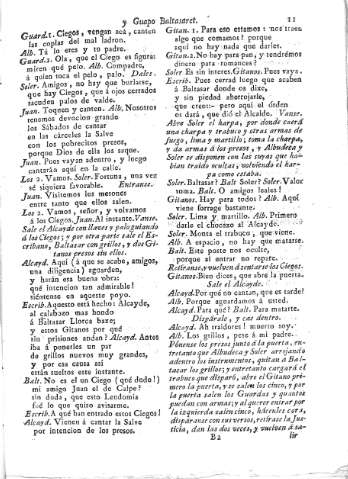 y Guapo Baltasaret. 11
Guard.1. Ciegos, vengan acá, canten
las coplas del mal ladron.
Alb. Tú lo eres y tu padre.
Guard.2. Ola, que el Ciego es figura:
miren qué pelo. Alb. Compadre,
á quien toca el pelo, palo. Dales.
Soler. Amigos, no hay que burlarse,
que hay Ciegos, que á ojos cerrados
sacuden palos de valde.
Juan. Toquen y canten. Alb. Nosotros
tenemos devocion grande
los Sábados de cantar
en las cárceles la Salve
con los pobrecitos presos,
porque Dios de ella los saque.
Juan. Pues vayan adentro, y luego
cantarán aquí en la calle.
Los 2. Vamos. Soler. Fortuna, una vez
sé siquiera favorable. Entranse.
Juan. Visitemos los mesones
entre tanto que ellos salen.
Los 2. Vamos, señor, y volvamos
á los Ciegos. Juan. Al instante. Vanse.
Sale el Alcayde con llaves y palo guiando
á los Ciegos; y por otra parte sale el Es-
cribano, Baltasar con grillos, y dos Gi-
tanos presos sin ellos.
Alcayd. Aquí (á que se acabe, amigos,
una diligencia) aguardan,
y harán esa buena obra:
qué intencion tan admirable!
siéntense en aqueste poyo.
Escrib. Aquesto será hecho: Alcayde,
al calabozo mas hondo
á Baltasar Lloeca baxe;
y estos Gitanos por qué
sin prisiones andan? Alcayd. Antes
iba á ponerles un par
de grillos nuevos muy grandes,
y por esa causa así
están sueltos este instante.
Balt. No es el un Ciego (qué dudo!)
mi amigo Juan el de Calpe?
sin duda, que esto Leudomia
fué lo que quiso avisarme.
Escrib. A qué han entrado estos Ciegos?
Alcayd. Vienen á cantar la Salve
por intencion de los presos.
Gitan. 1. Para eso estamos: nos traen
algo que comamos? porque
aquí no hay nada que darles.
Gitan. 2. No hay para pan, y tendrémos
dinero para romances?
Soler. Es sin interes. Gitanos. Pues vaya.
Escrib. Pues cerrad luego que acaben
á Baltasar donde os dixe,
y sin piedad aherrojarle,
que presto pero aquí el órden
os dará, que dió el Alcalde. Vanse.
Abre Soler el harpa, por donde sacará
una charpa y trabuco y otras armas de
fuego, lima y martillo; toma la charpa,
y da armas á los presos, y Albudeca y
Soler se disponen con las suyas que ha-
bian traido ocultas, volviendo el har-
pa como estaba.
Soler. Baltasar? Balt. Soler? Soler. Valor
toma. Balt. O amigos leales!
Gitanos. Hay para todos? Alb. Aquí
viene forroge bastante.
Soler. Lima y martillo. Alb. Primero
darle el chocazo al Alcayde.
Soler. Monta el trabuco, que viene.
Alb. A espacio, no hay que matarse.
Balt. Este poste nos oculte,
porque al entrar no repare.
Retiranse, y vuelven á sentarse los Ciegos.
Gitanos. Bien dices, que abre la puerta.
Sale el Alcayde.
Alcayd. Por qué no cantan, que es tarde?
Alb. Porque aguardamos á usted.
Alcayd. Para qué? Balt. Para matarte.
Dispárale, y cae dentro.
Alcayd. Ah traidores! muerto soy.
Alb. Los grillos, pese á mi padre.
Pónense los presos junto á la puerta, en-
tretanto que Albudeca y Soler arrojando
adentro los instrumentos, quitan á Bal-
tasar los grillos; y entretanto cargará el
trabuco que disparó, abre el Gitano pri-
mero la puerta, y se salen los cinco, y por
la puerta salen los Guardas y quantos
puedan con armas; y al querer entrar por
la izquierda salen cinco, hácenles cara,
disparanse con sus versos, retírase la Jus-
ticia, dan los dos voces, y vuelven á sa-
B2 lir